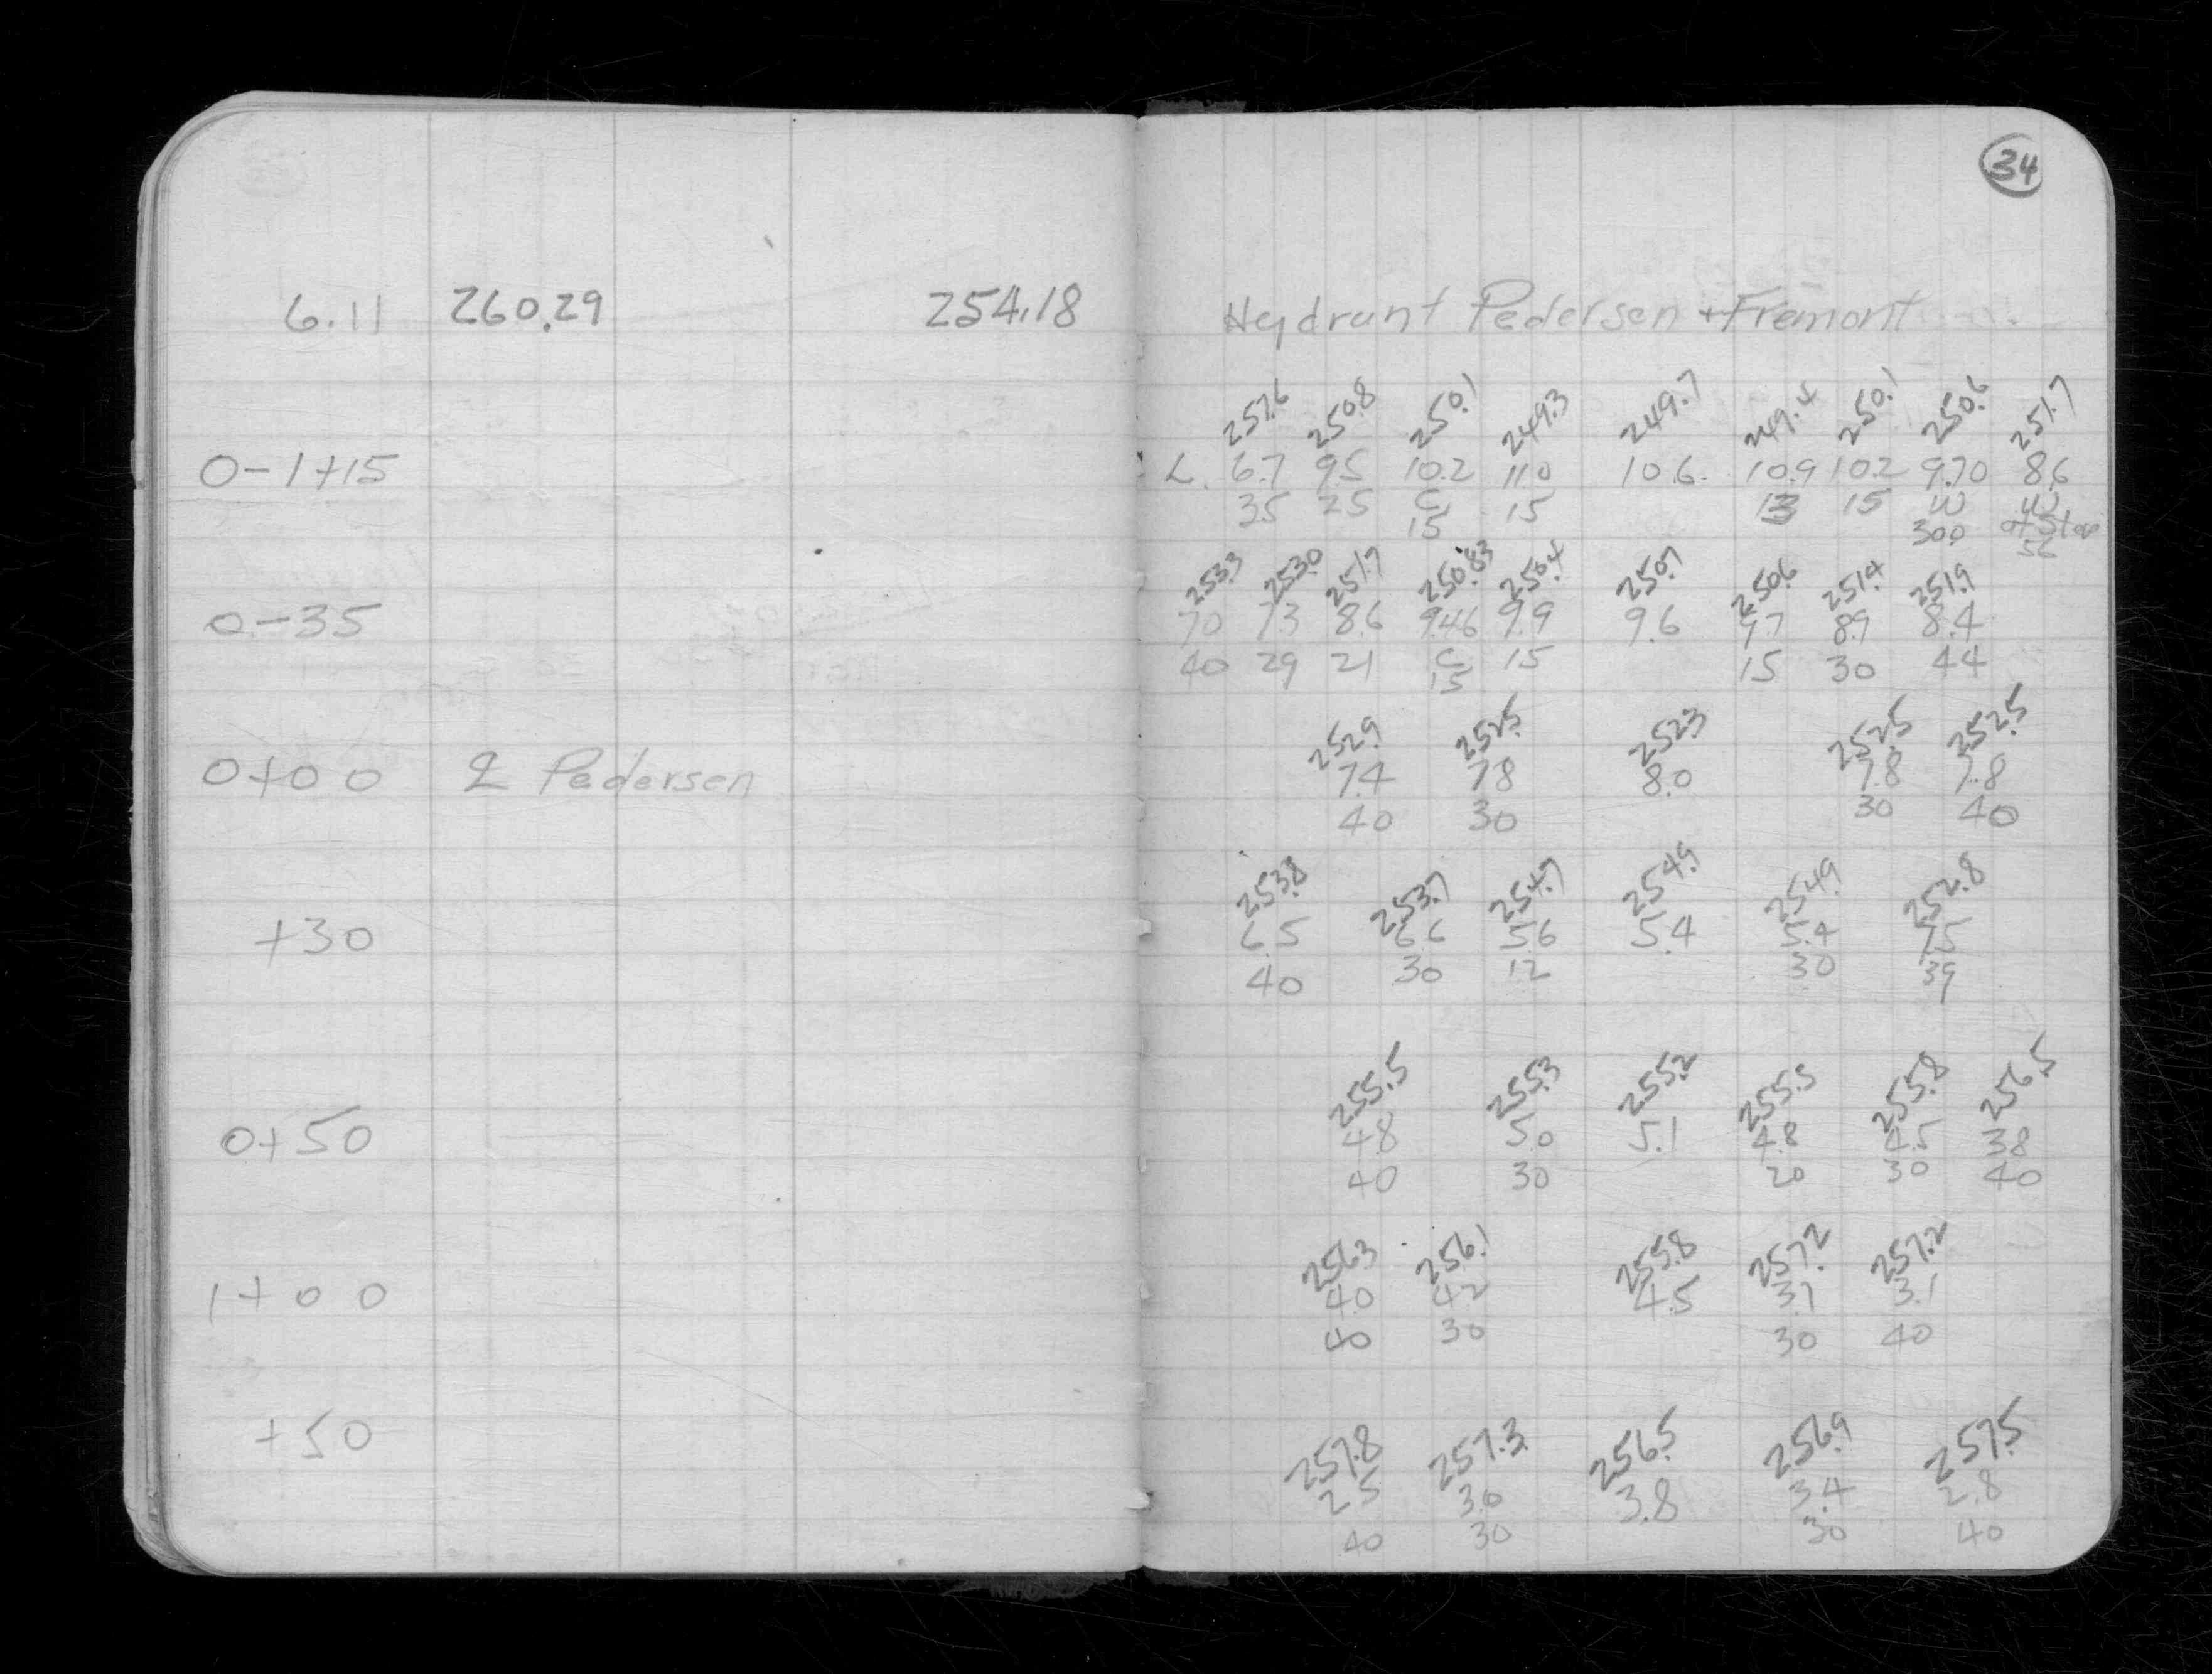 34
6.11 260.29 254.18 Hydrant Pedersen + Fremont
257.6 250.8 250.1 249.3 249.7 249.4 250.1 250.6 251.7
0-1+15 L. 6.7 9.5 10.2 11.0 10.6 10.9 10.2 9.70 8.6
35 25 C 15 13 15 W W
15 300 at Stop
56
253.3 253.0 251.7 250.83 250.4 250.7 250.6 251.4 251.9
0-35 70 7.3 8.6 9.46 9.9 9.6 9.7 8.9 8.4
40 29 21 C 15 15 30 44
15
252.9 252.5 252.3 252.5 252.5
0+00 ℄ Pedersen 7.4 7.8 8.0 7.8 7.8
40 30 30 40
253.8 253.7 254.7 254.9 254.9 252.8
+30 6.5 6.6 5.6 5.4 5.4 7.5
40 30 12 30 39
255.5 255.3 255.2 255.5 255.8 256.5
0+50 4.8 5.0 5.1 4.8 4.5 3.8
40 30 20 30 40
256.3 256.1 255.8 257.2 257.2
1+00 4.0 4.2 4.5 3.1 3.1
40 30 30 40
257.8 257.3 256.5 256.9 257.5
+50 2.5 3.0 3.8 3.4 2.8
40 30 30 40